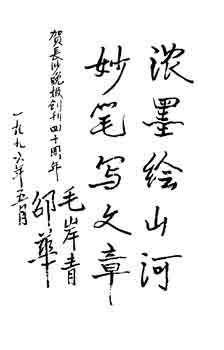 浓墨绘山河
妙笔写文章
贺长沙晚报创刊四十周年
毛岸青
邵華
一九九六年五月